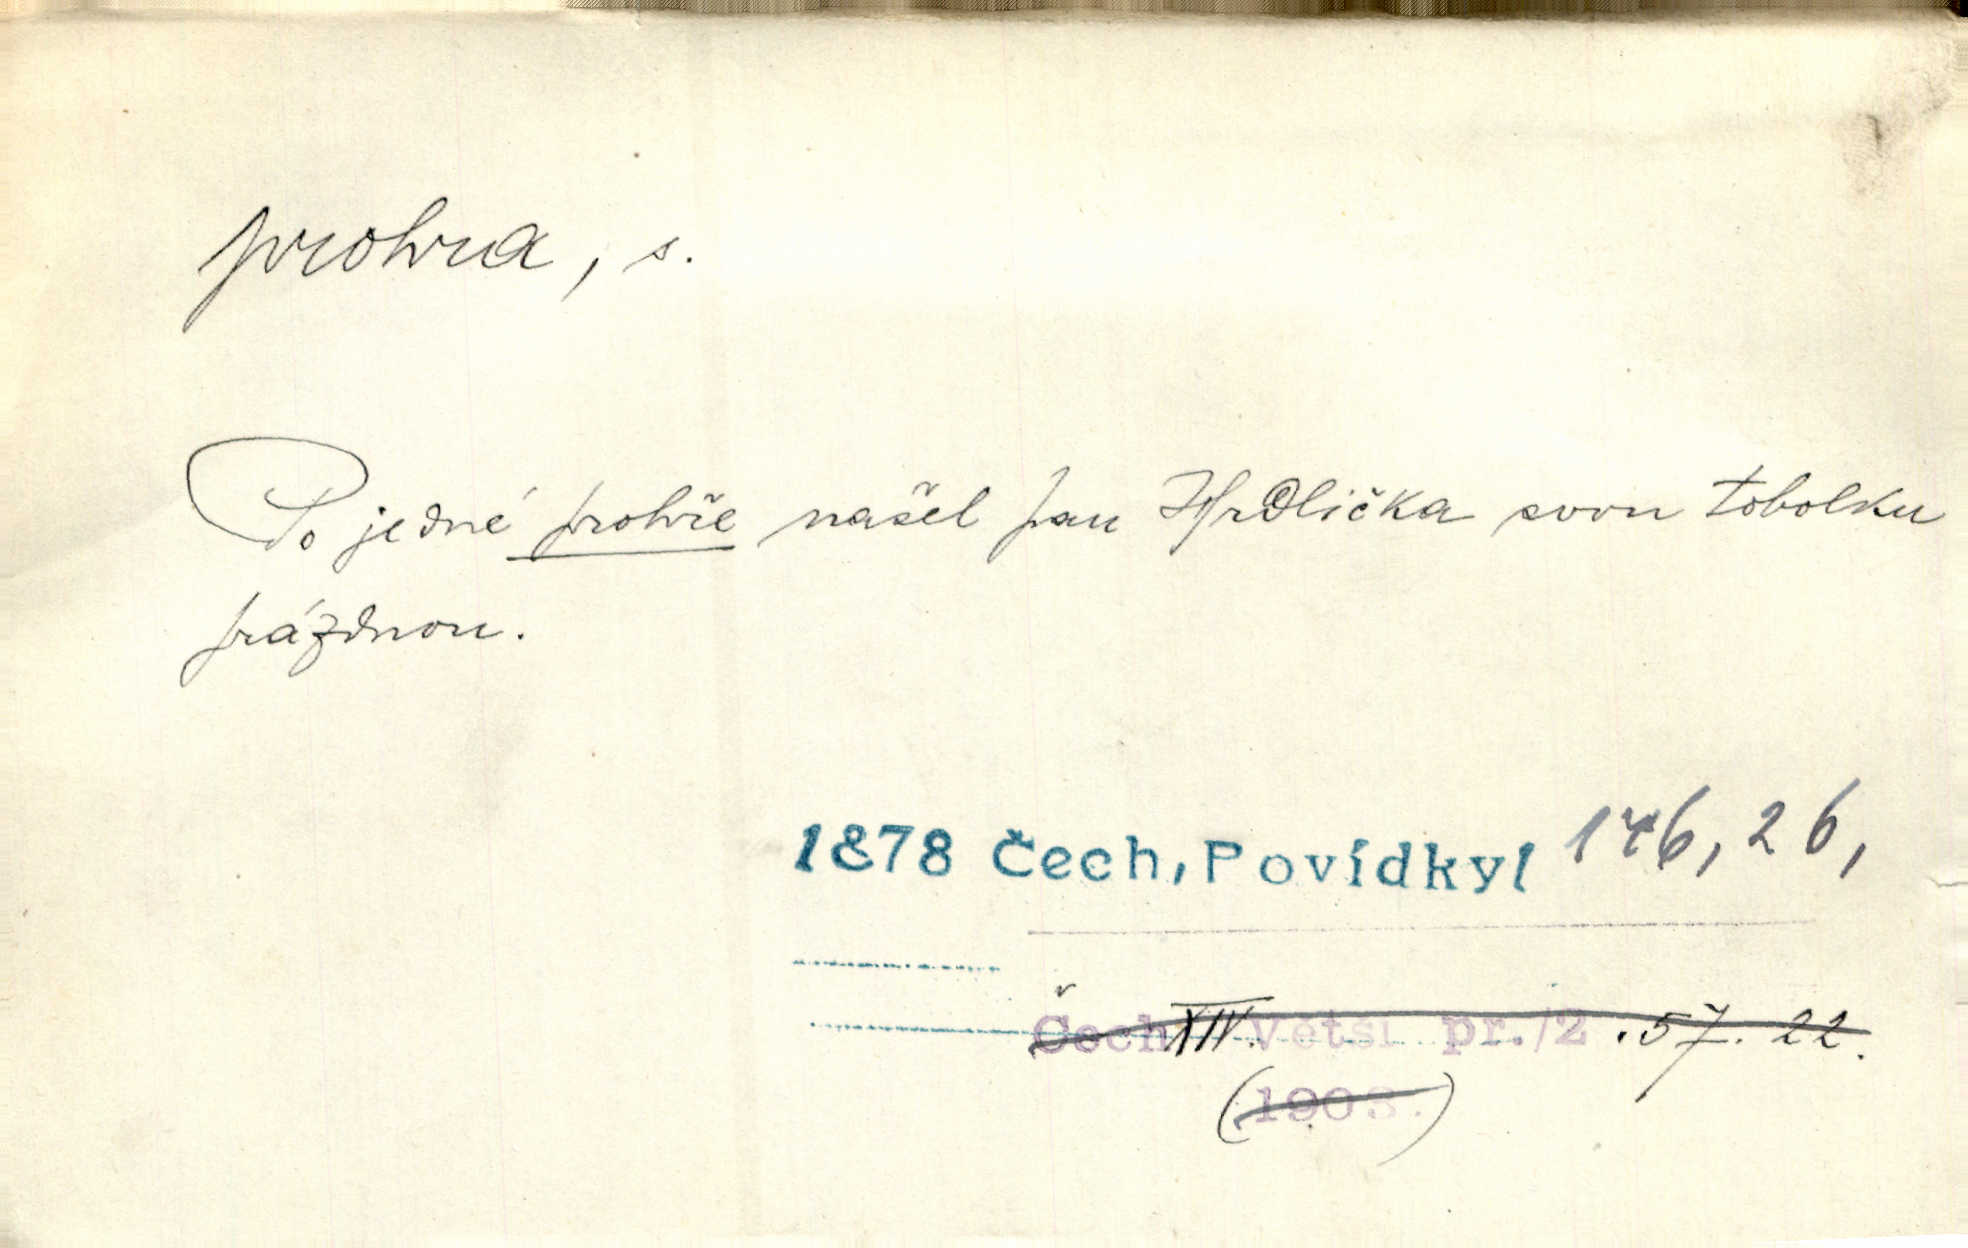 prohra, s.
Po jedné prohře našel pan Hrdlička svou tobolku
prázdnou.
1878 Čech, Povídky1 146, 26,
Čech XIV. Větší pr./2 .57. 22.
(1903.)